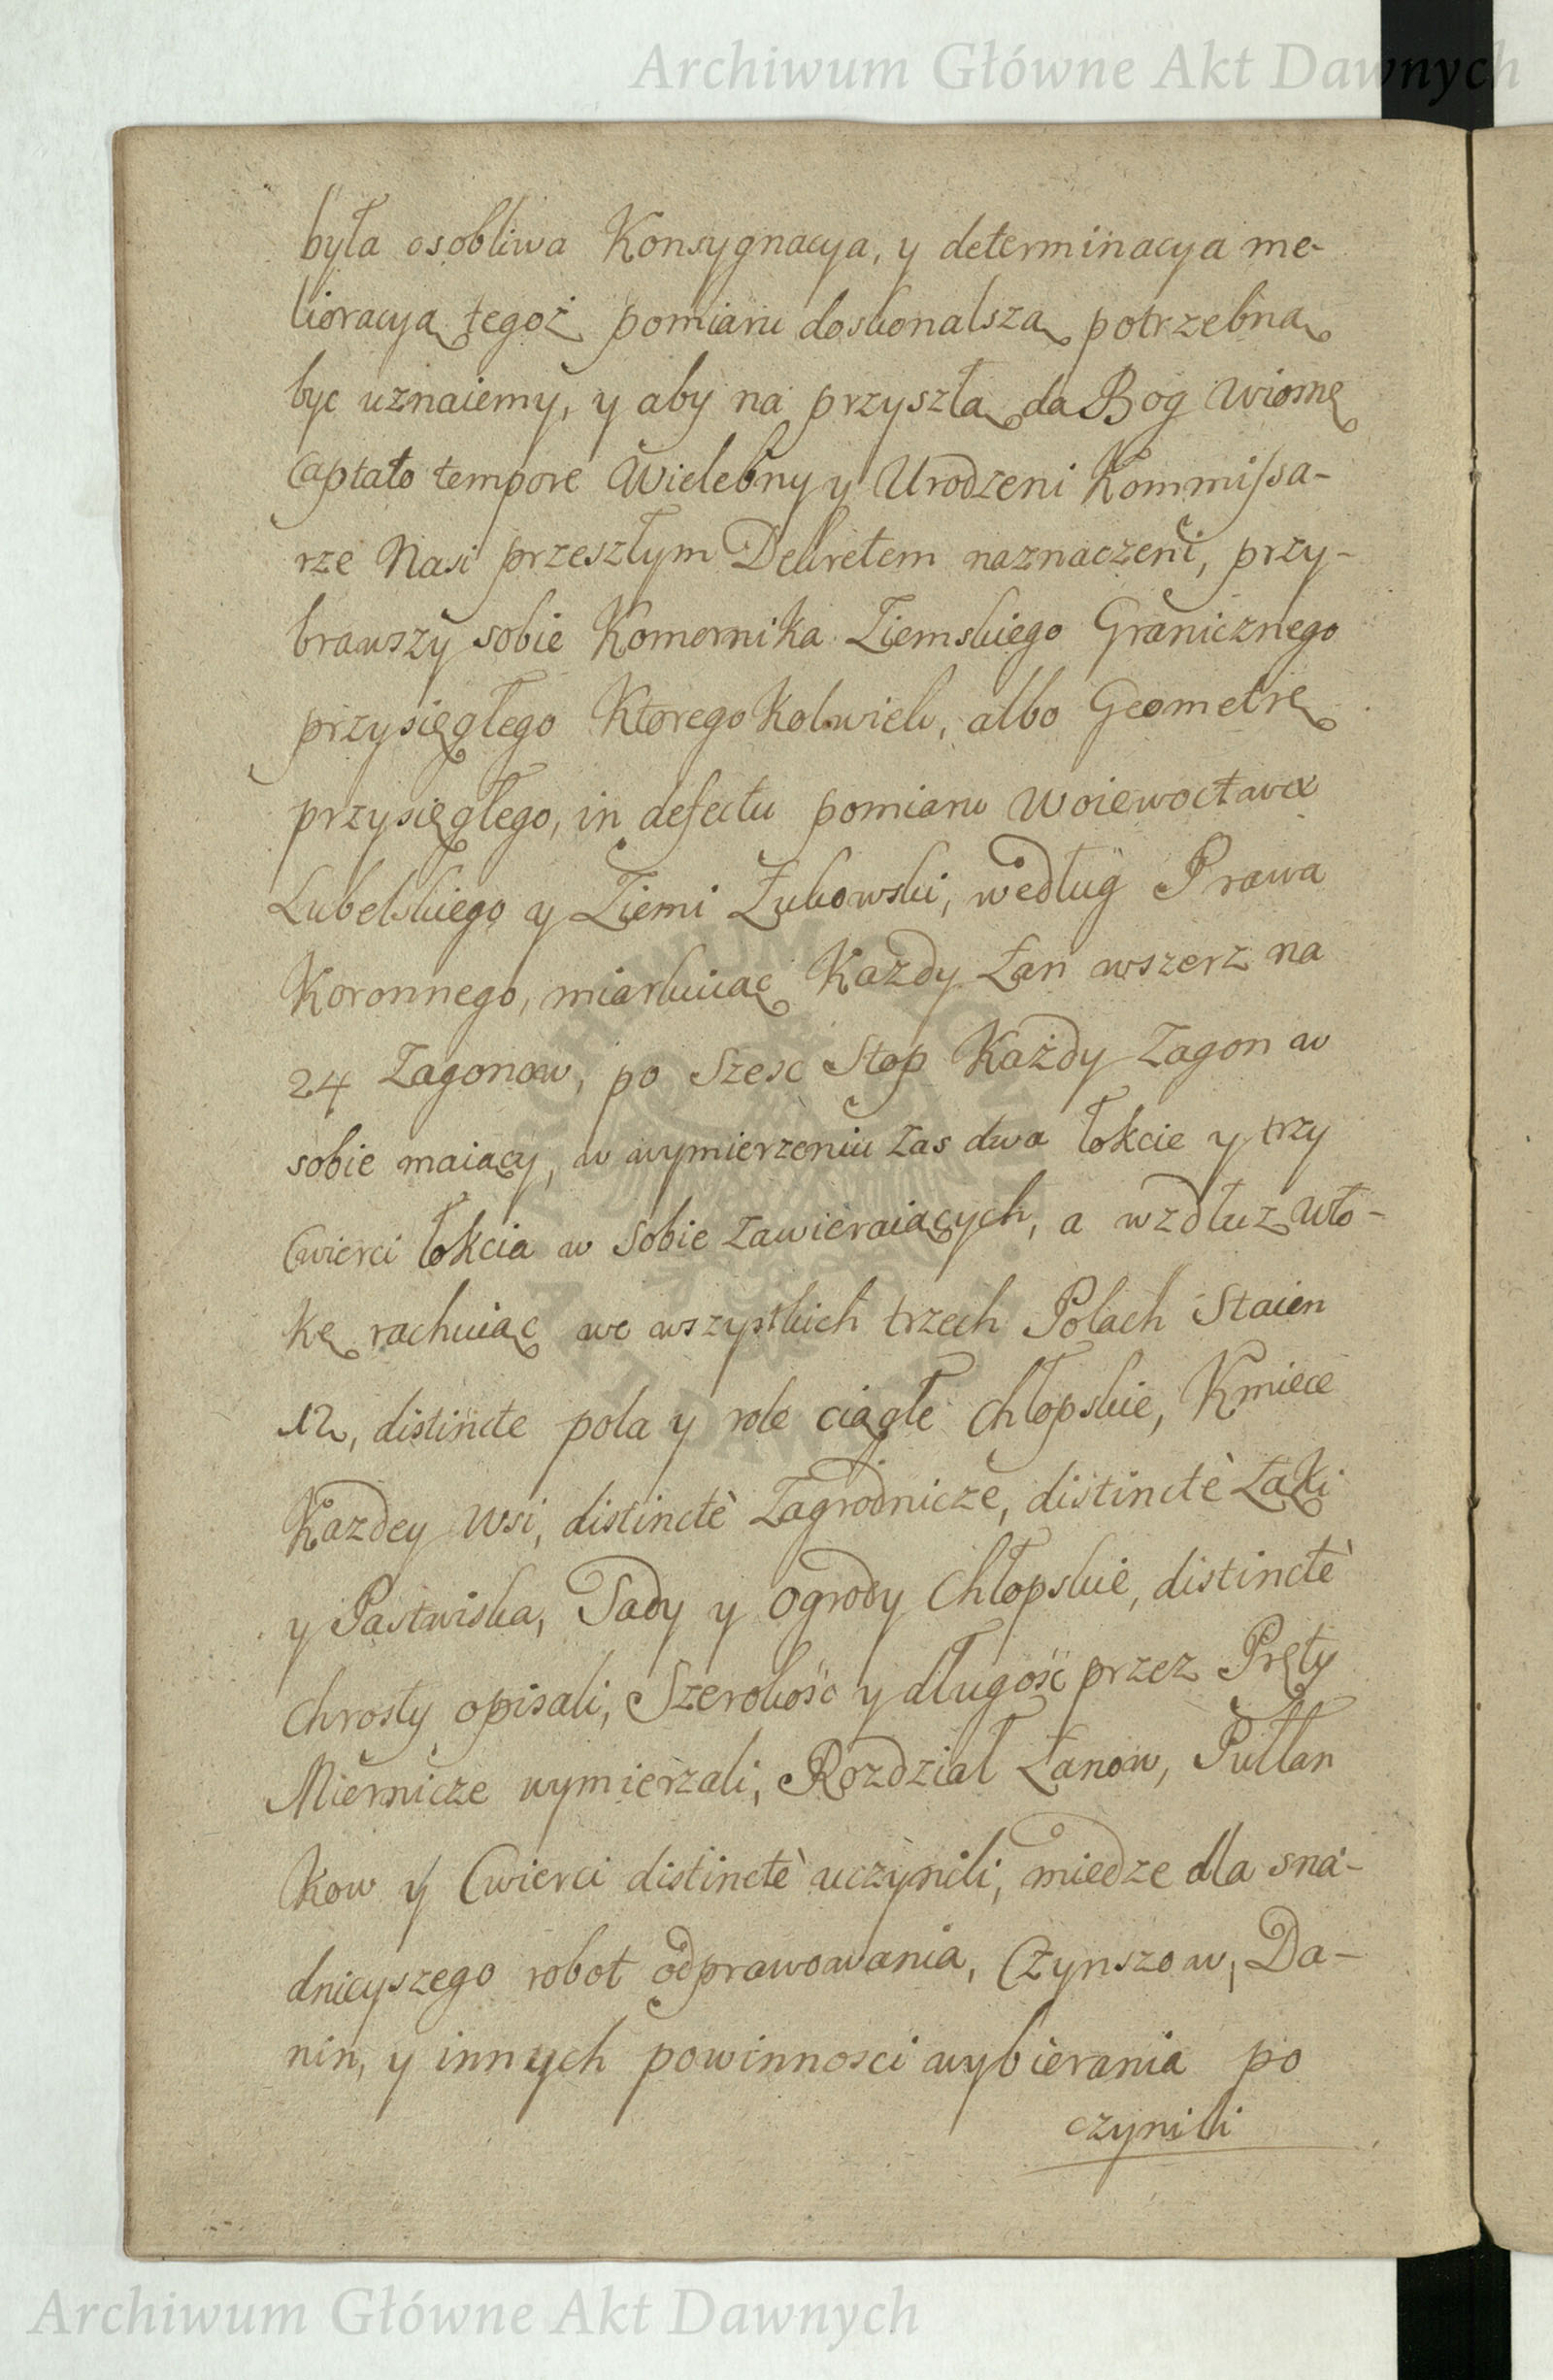 Archiwum Główne Akt Dawnych
była osobliwa Konsygnacya, y determinacya me-
lioracyą tegoż pomiaru doskonalszą potrzebną
byc uznaiemy, y aby na przyszłą da Bog wiosnę
Captato tempore Wielebny y Urodzeni Kommissa-
rze Nasi przeszłym Dekretem naznaczeni, przy-
brawszy sobie Komornika Ziemskiego Granicznego
przysięgłego Ktorego Kolwiek, albo Geometrę
przysięgłego, in defectu pomiaru Woiewoctwa
Lubelskiego y Ziemi Łukowski, według Prawa
Koronnego, miarkuiąc Kazdy Łan wszerz na
24 Zagonow, po Szesc Stop Każdy Zagon w
sobie maiący, w wymierzeniu zas dwa łokcie y trzy
Cwierci łokcia w sobie zawieraiących, a wzdłuz Wło-
kę rachuiąc we wszystkich trzech Polach Staien
12, distincte pola y role ciągłe Chłopskie, Kmiece
Kazdey Wsi, distinctè Zagrodnicze, distinctè Łaki
y Pastwiska, Sady y Ogrody Chłopskie, distinctè
Chrosty opisali, Szerokość y długość przez Pręty
Miernicze wymierzali, Rozdział Łanow, Pułłan
kow y Cwierci distinctè uczynili, miedze dla sna-
dnieyszego robot odprawowania, Czynszow, Da-
nin, y innych powinnosci wybierania po
czynili
ARCHIWUM GŁÓWNE AKT DAWNYCH
Archiwum Główne Akt Dawnych